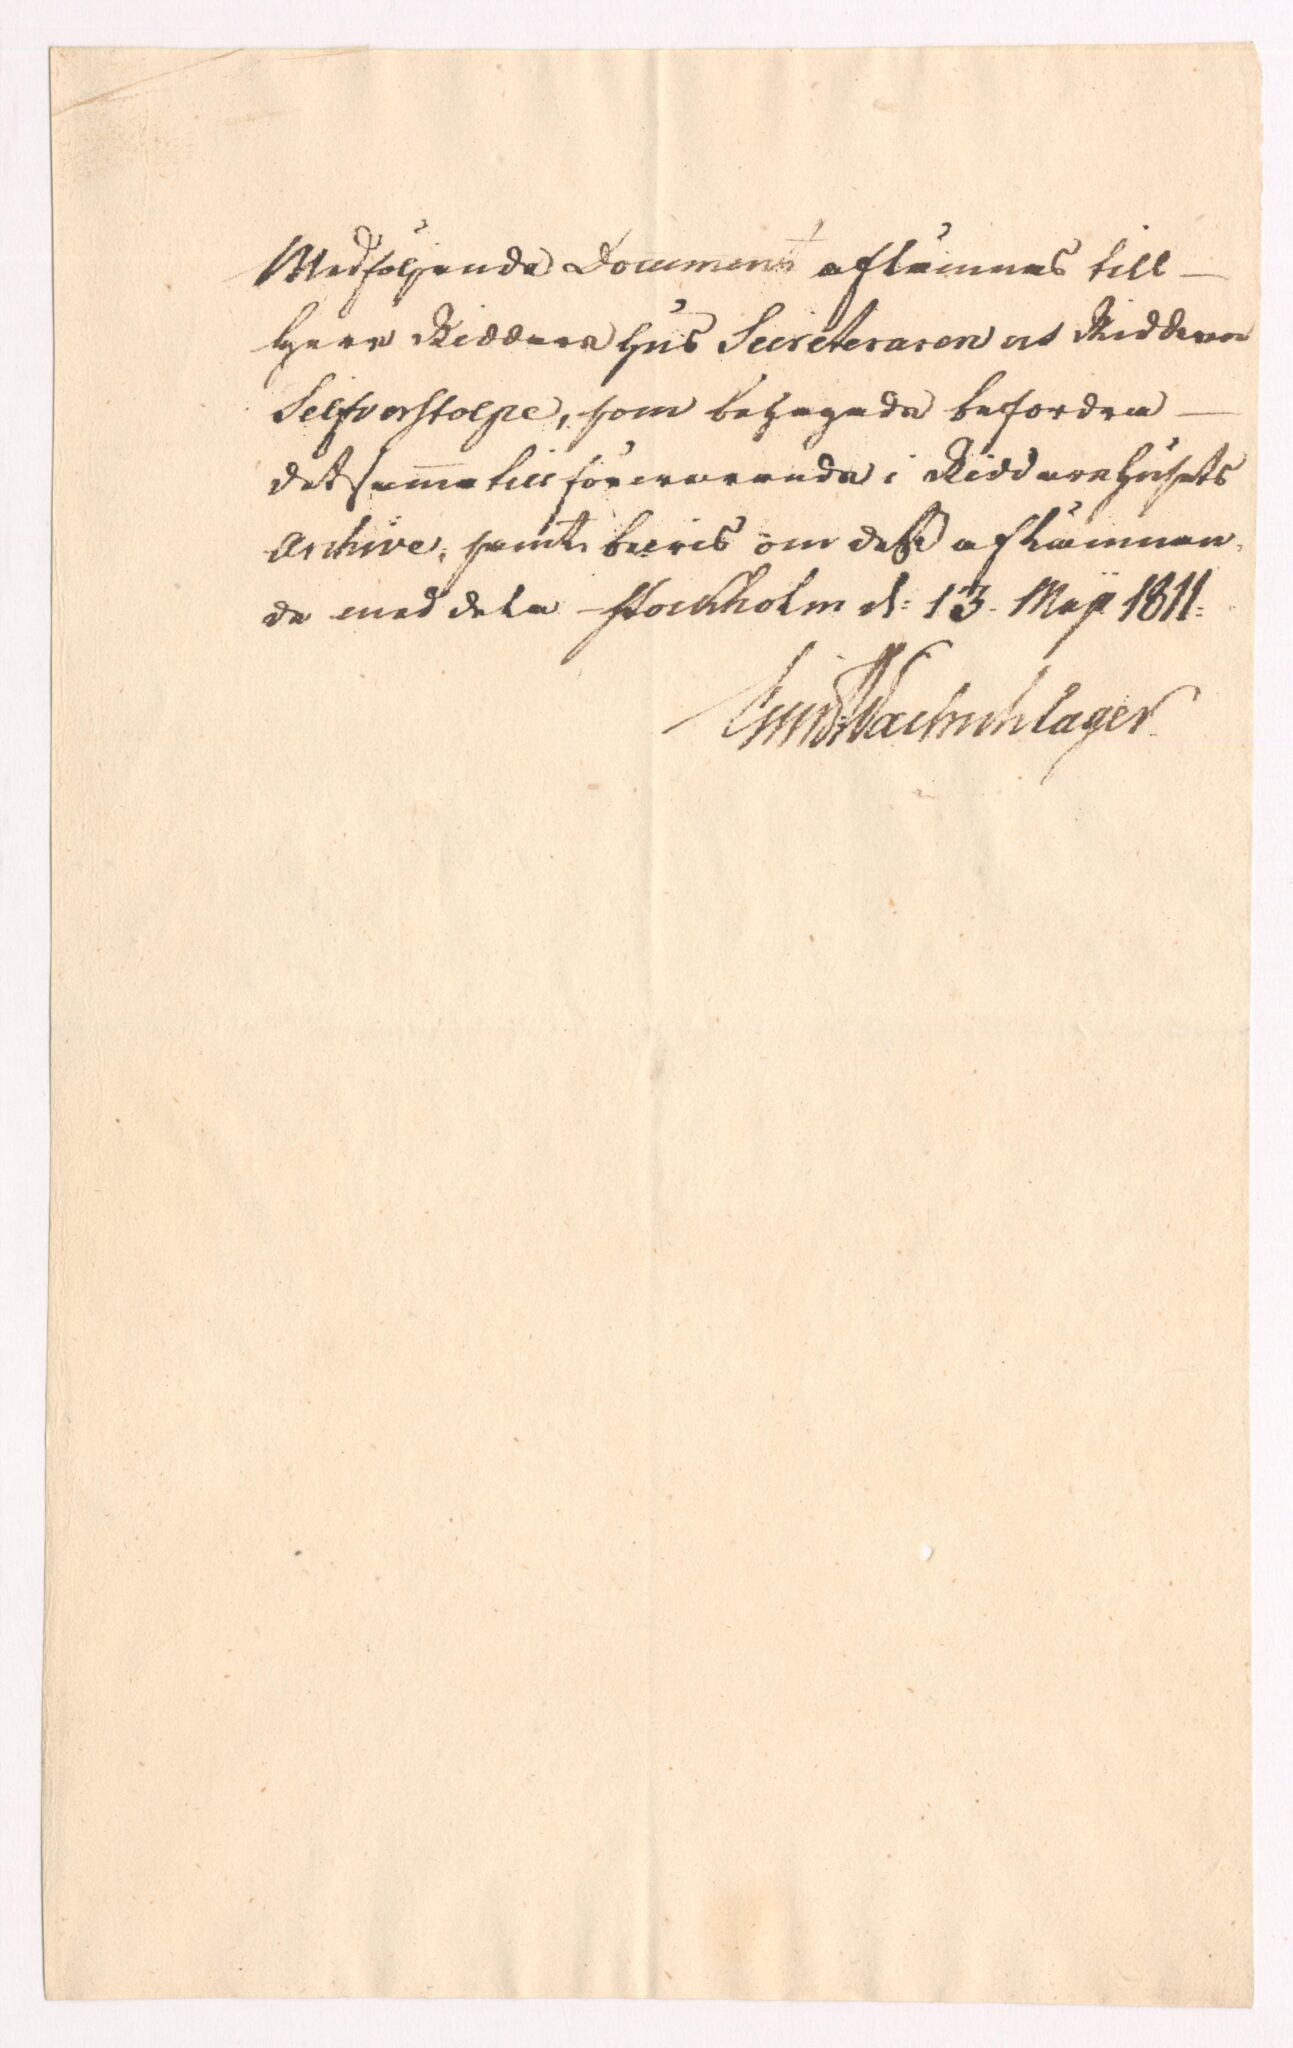 Medföljande Document aflämnas till
Herr Riddare Hus Secreteraren och Riddaren
Silfverstolpe, som behagade befordra
detsamma till förvarande i Riddare Husets
Archive, samt bevis om dess aflämnan-
de meddela Stockholm d: 13 Maji 1811.
Wachschlager